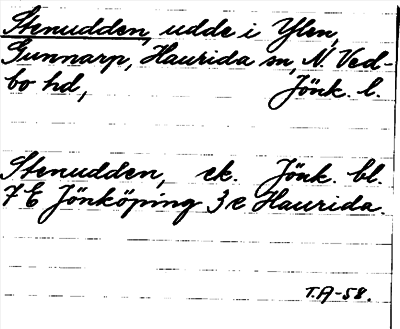 Stenudden, udde i Ylen,
Gunnarp, Haurida sn, N. Ved-
bo hd, Jönk. l.
Stenudden, ek. Jönk. bl.
7 E Jönköping 3 e Haurida.
T.A-58.